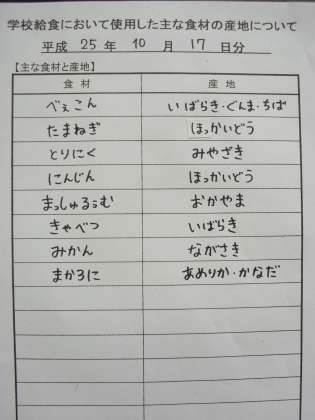 学校給食において使用した主な食材の産地について
平成 25 年 10 月 17 日分
【主な食材と産地】
食材 産地
べぇこん いばらき・ぐんま・ちば
たまねぎ ほっかいどう
とりにく みやざき
にんじん ほっかいどう
まっしゅるぅむ おかやま
きゃべつ いばらき
みかん ながさき
まかろに あめりか・かなだ